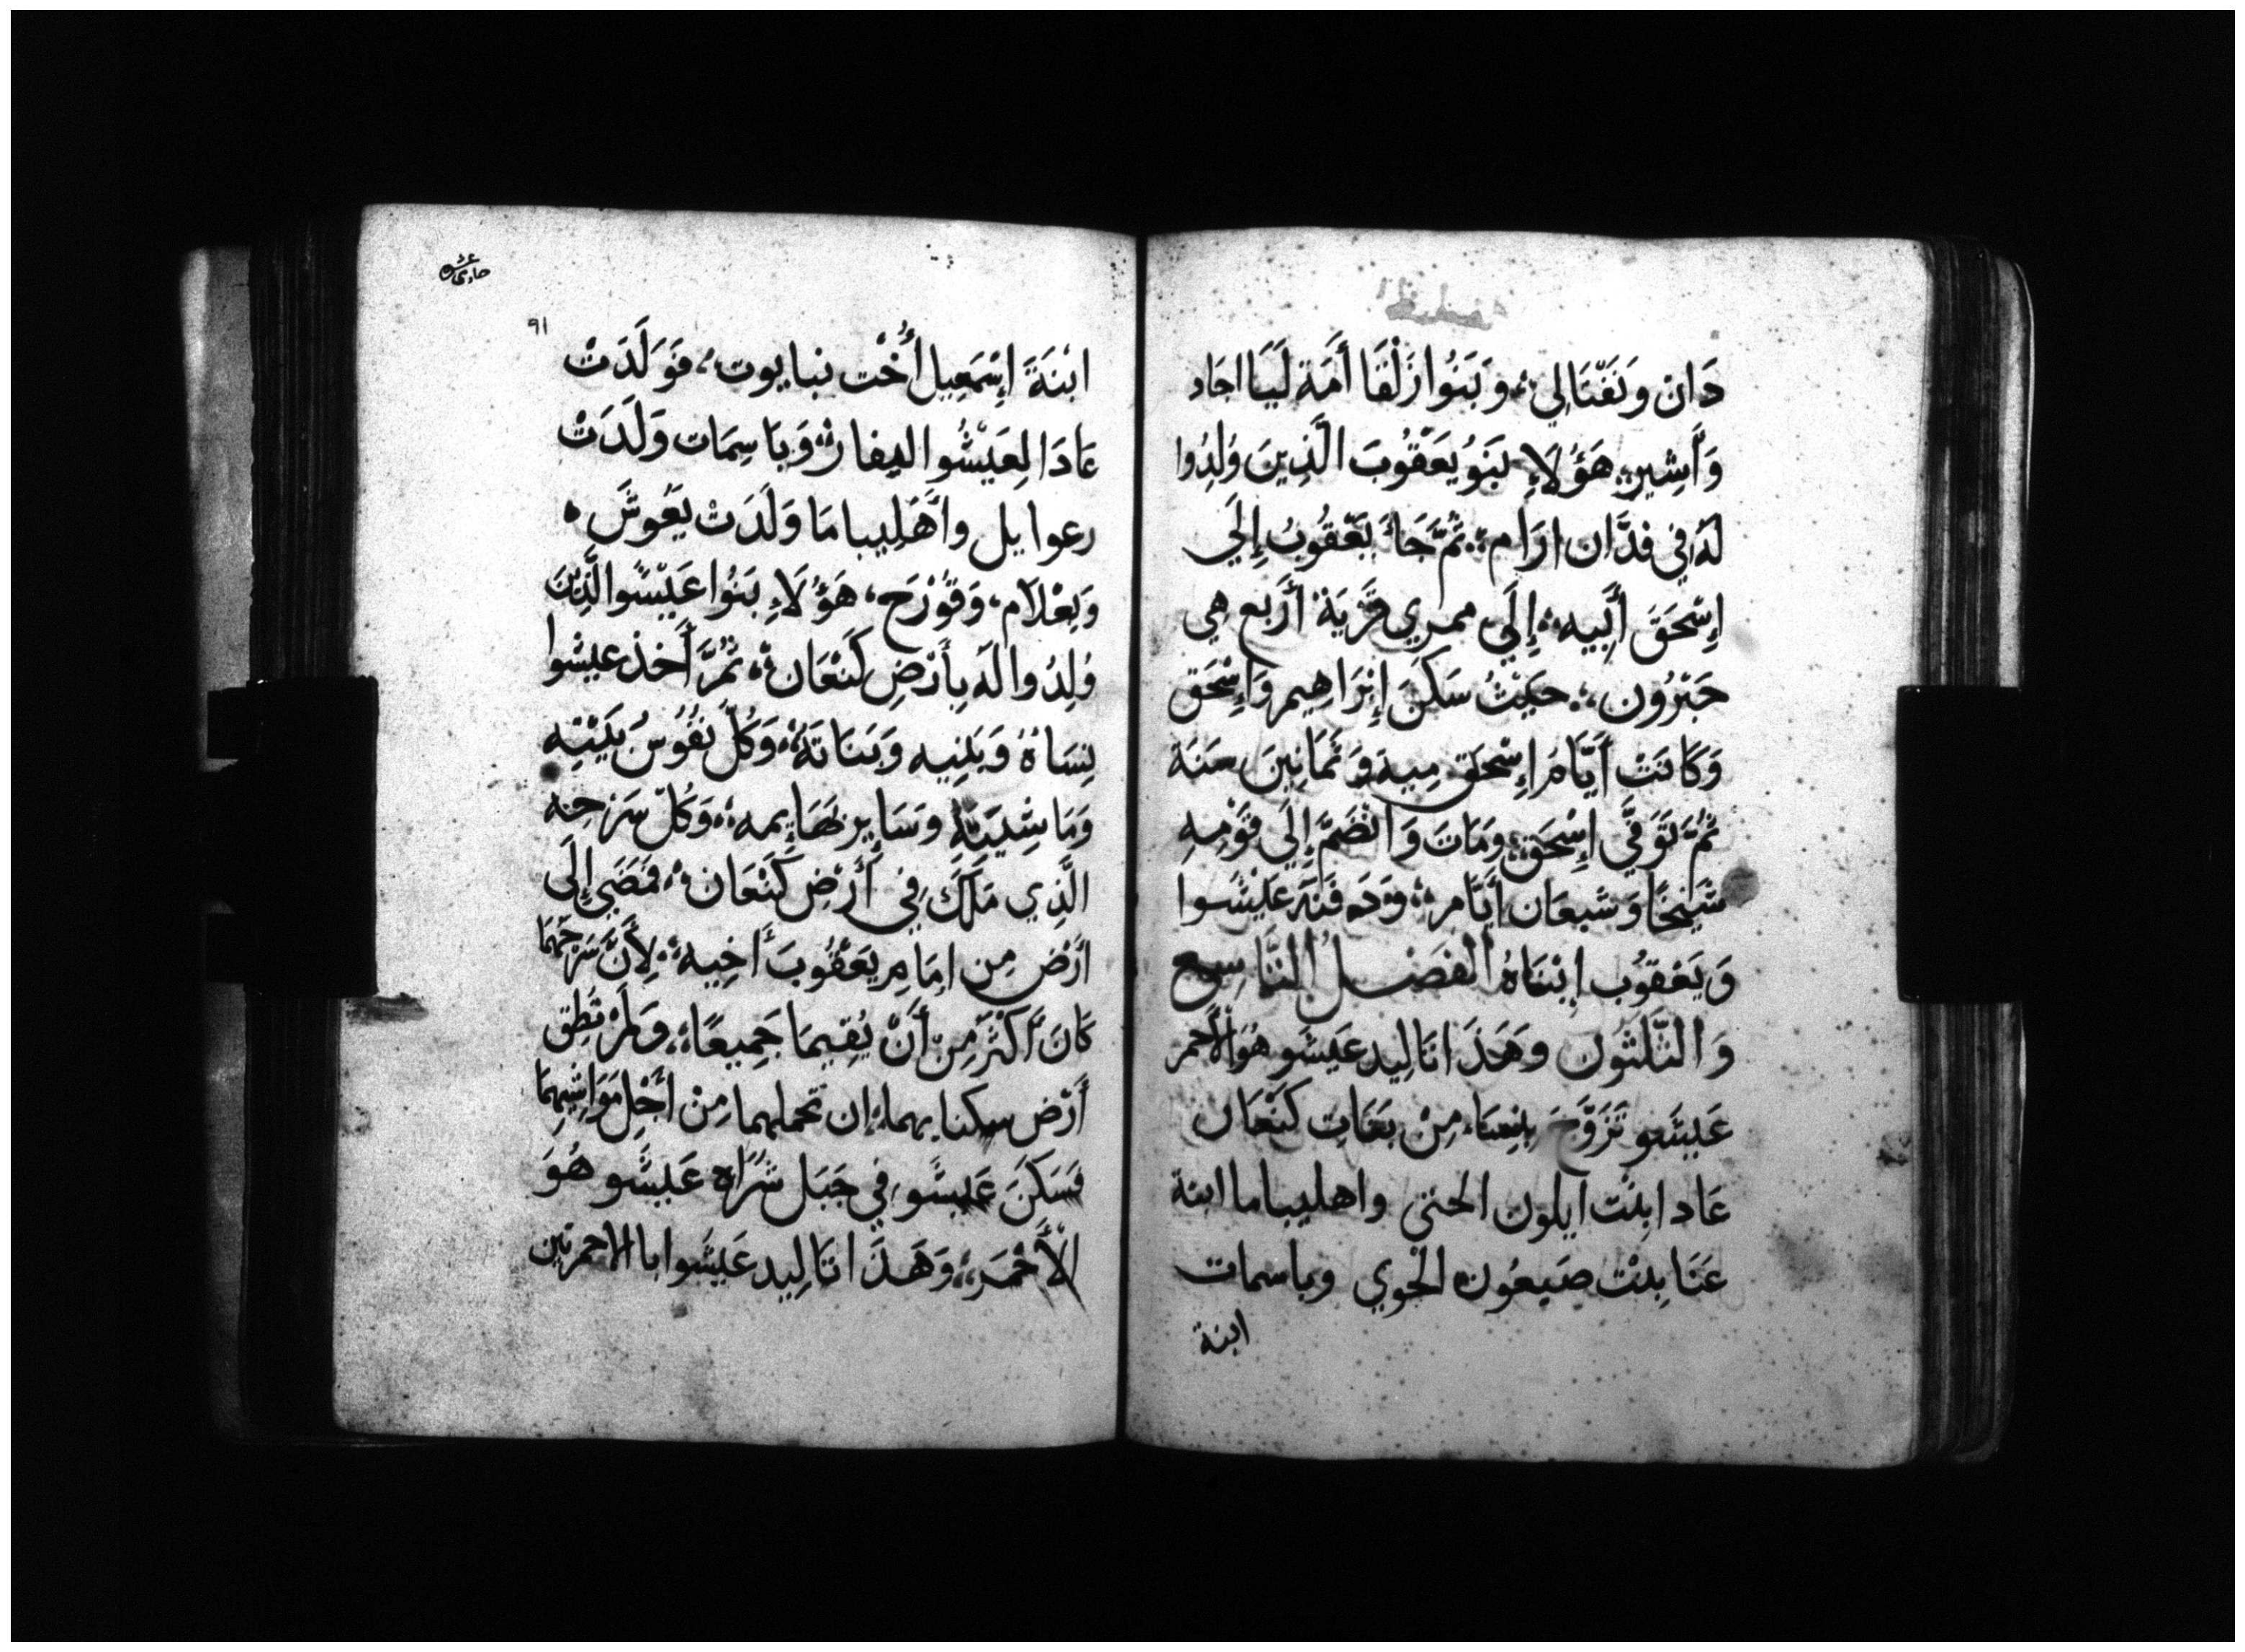 دَانْ وَنَفْتَالِي؞ وَبَنُوا زَلْفَا أَمَة لَيَّا اجَاد
وَأَشِير؞ هَؤُلَاءِ بَنَوُ يَعْقُوبَ الَّذِينَ وُلِدُوا
لَهُ فِي فدَّان ارَام؞ ثُمَّ جَاءَ يَعْقُوبُ إِلَي
إِسْحَقَ أَبِيه؞ إِلَي ممري قَرْيَة أَرْبع هِي
حَبْرُون؞ حَيْثُ سَكَنَ إِبْرَاهِيم وَإِسْحَق
وَكَانَتْ أَيَّام إِسْحَق مِيَة وَثَمَانِينَ سَنَة
ثُمَّ تَوَفَّي إِسْحَق؞ وَمَاتَ وَانْضَمَّ إِلَي قَوْمِهِ
شَيْخًا وَشبعَان أَيَّام؞ وَدَفَنَهُ عَيْشوا
وَيَعْقوُب ابْنَاهُ الفَصْلُ التَّاسِع
وَالثَّلثوُن وَهَذَا تَالِيد عَيشَو هُوَ الأَحمر
عَيشَو تَزَوَّجَ بِنِسَاء مِنْ بَنَاتِ كَنْعَان
عَادا بِنْت ايلون الحتي واهليباما ابنة
عَنَا بِنْت صَبعُون الْحوِي وباسمات
ابنة
حادى عشر
٩١
ابْنَةَ إِسْمَعِيل أُخْت نبايوت؞ فَوَلَدَتْ
عَادَا لِعَيْشُوا اليفاز؞ وَبَاسِمَات وَلَدَتْ
رعوايل وأهَلِيباما وَلَدَتْ يَعُوش؞
وَيعْلَام، وَقُوْرَح، هَؤُلَاءِ بَنُوا عَيْشوا الَّذِينَ
وُلِدُوا لَه بِأَرْضِ كَنْعَان؞ ثُمَّ أَخذ عيشوا
نِسَاهُ وَبَنِيه وَبَنَاتَهُ؞ وَكُلّ نفُوُسُ بَيْتِهِ
وَمَاشِيَتَهُ وَسَايِر بَهَايِمه؞ وَكُلّ سَرْحِه
الَّذِي مَلَكَ فِي أَرْضِ كَنْعَان؞ فَمَضَي إِلَى
ارْض مِن امَامِ يَعْقُوبَ أَخِيه؞ لِأَنَّ سَرْحهُمَا
كَانَ أَكْثَرَ مِن أَنْ يُقِيمَا جَمِيعًا؞ وَلَمْ تُطِق
أَرْض سكنا بهما؞ ان تحملهما مِنْ أَجْلِ مَوَاشِيهِمَا
فَسَكَنَ عَيشَو فِي جَبَل شَرَاه عَيشَو هُوَ
الْأَحْمَر؞ وَهَذَا تَالِيد عَيشَوا با الاحمريين